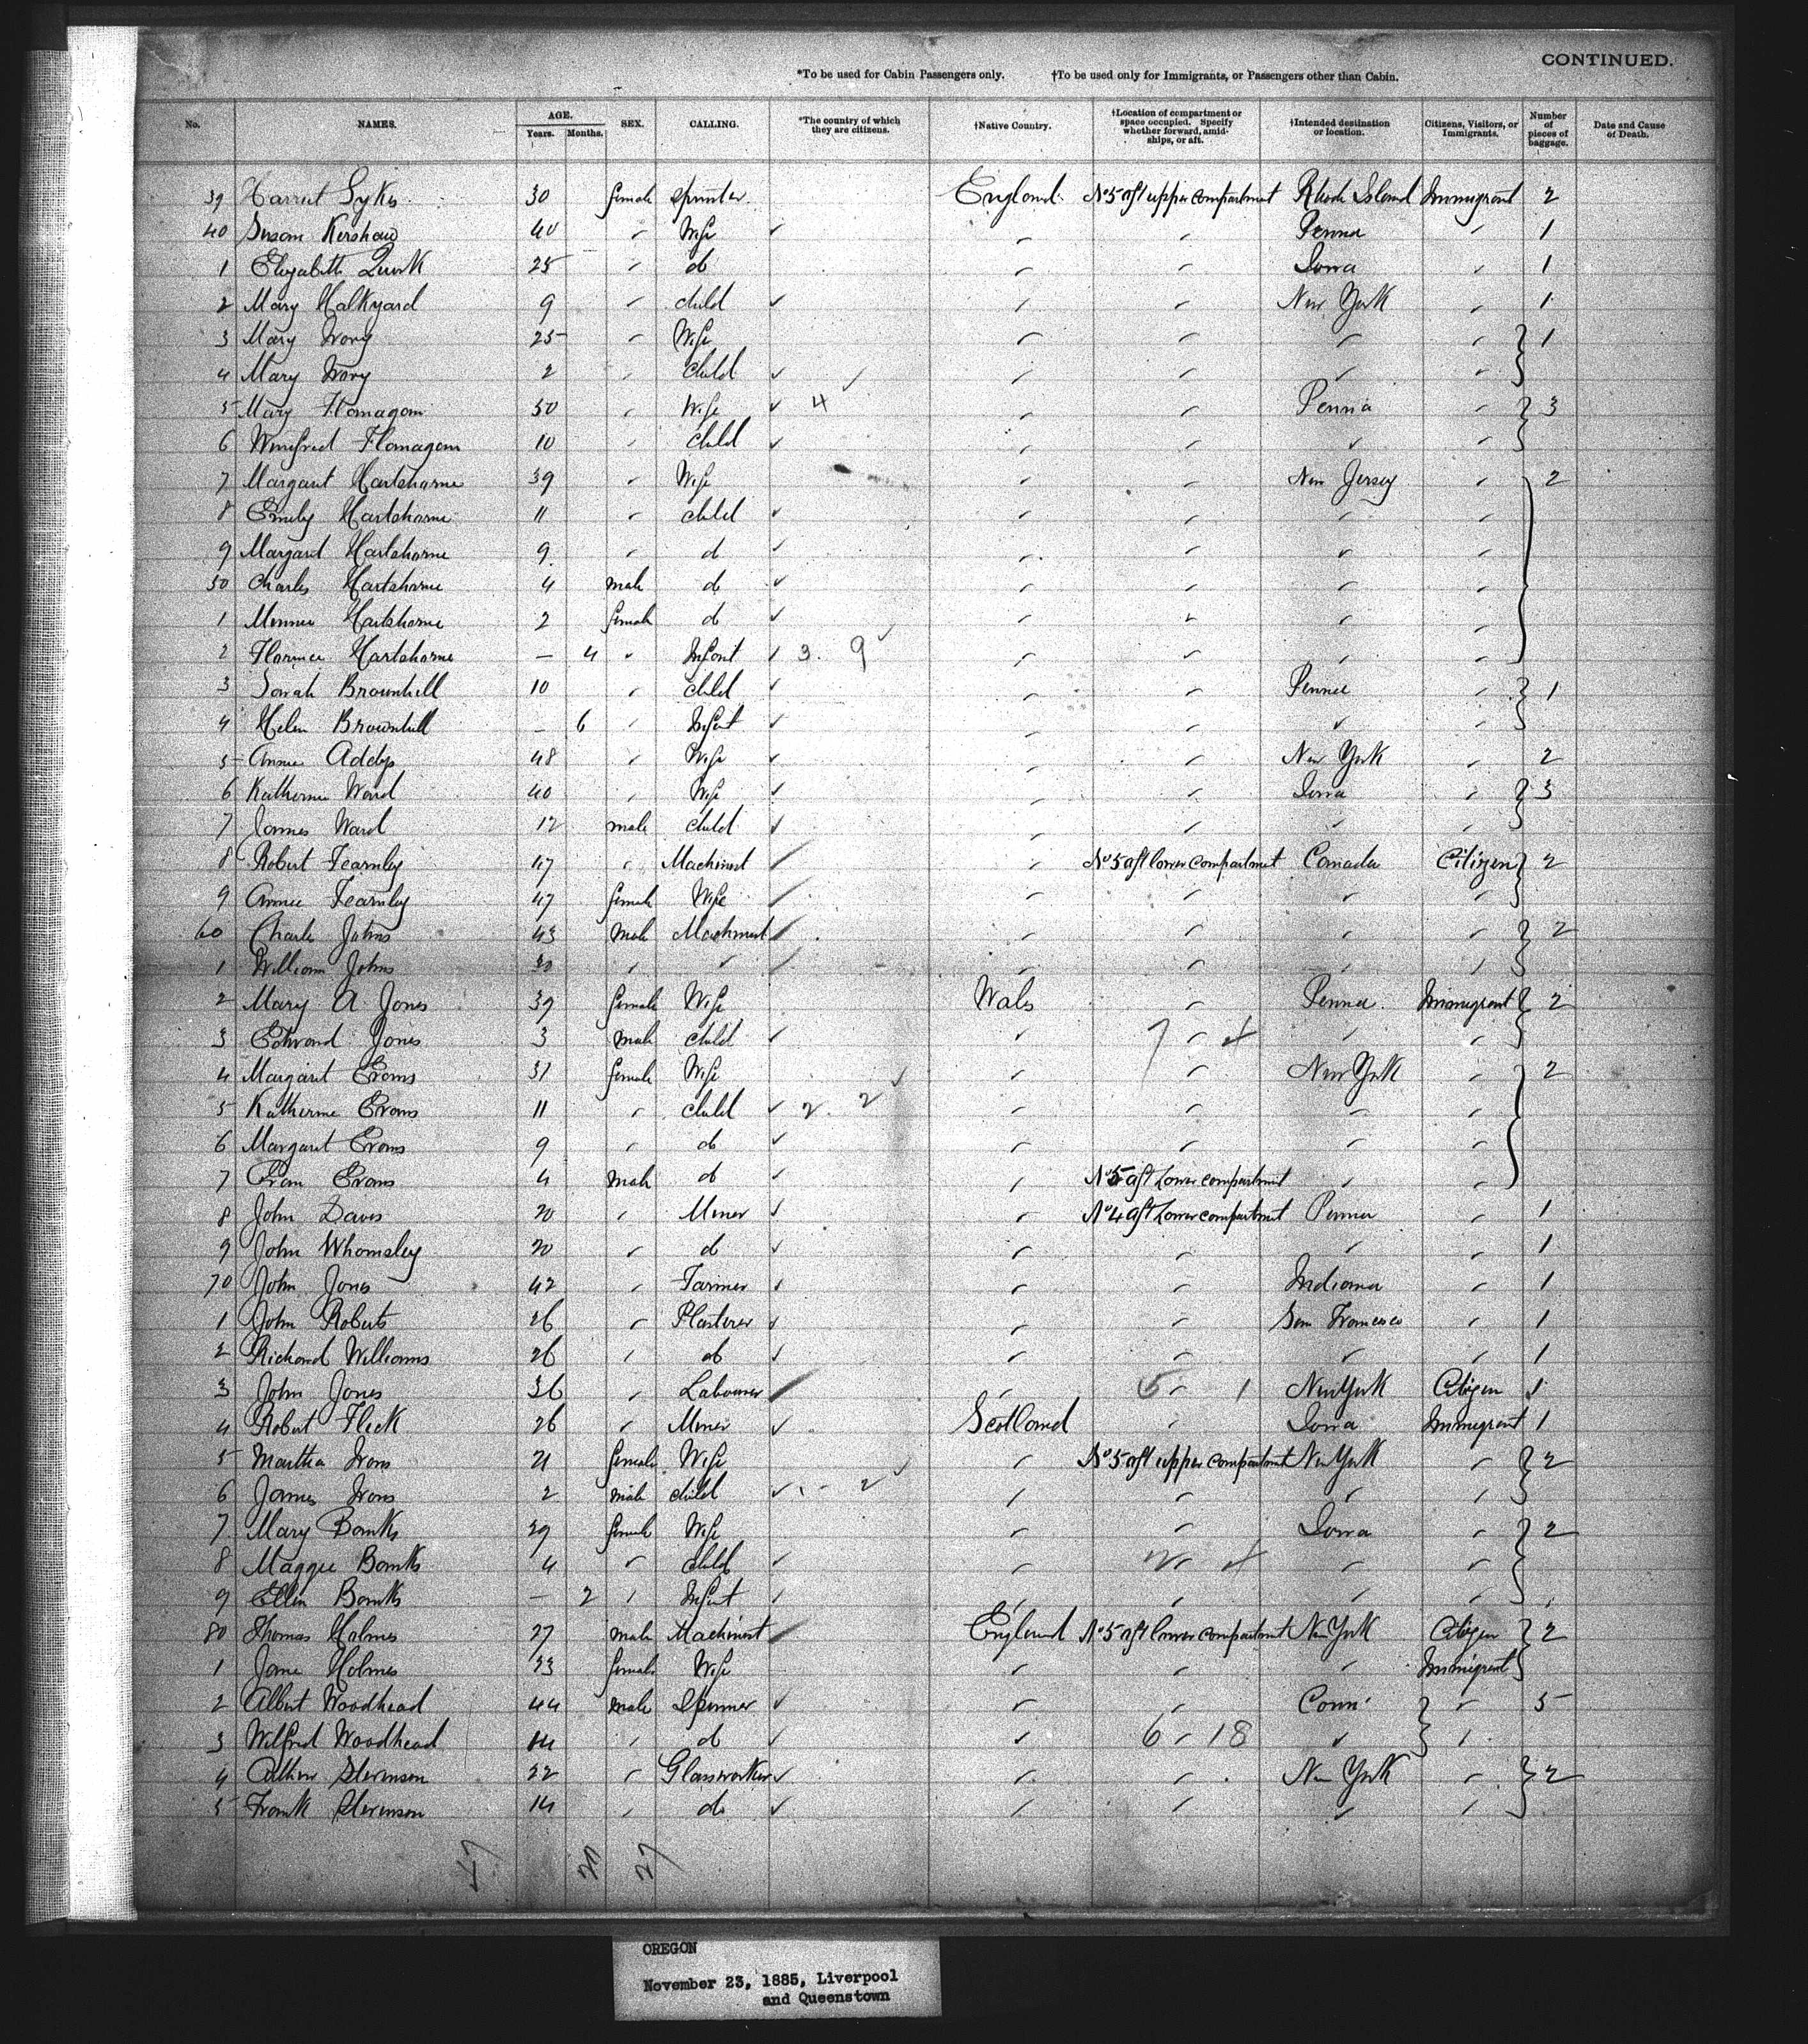 CONTINUED.
*To be used for Cabin Passengers only. †To be used only for Immigrants, or Passengers other than Cabin.
No. NAMES. AGE. Years. Months. SEX. CALLING. *The country of which they are citizens. †Native Country. †Location of compartment or space occupied. Specify whether forward, amidships, or aft. †Intended destination or location. Citizens, Visitors, or Immigrants. Number of pieces of baggage. Date and Cause of Death.
39 Harriet Sykes 30 female Spinster England No 5 aft upper compartment Rhode Island Immigrant 2
40 Susan Kershaw 40 " Wife " " Penna " 1
1 Elizabeth Quirk 25 " do " " Iowa " 1
2 Mary Halkyard 9 " child " " New York " 1
3 Mary Ivory 25 " Wife " " " " 1
4 Mary Ivory 2 " child " " " "
5 Mary Flanagan 50 " Wife 4 " " Penna " 3
6 Winifred Flanagan 10 " child " " " "
7 Margaret Hartshorne 39 " Wife " " New Jersey " 2
8 Emily Hartshorne 11 " child " " " "
9 Margaret Hartshorne 9 " do " " " "
50 Charles Hartshorne 4 male do " " " "
1 Minnie Hartshorne 2 female do " " " "
2 Florence Hartshorne — 4 " Infant 3. 9 " " " "
3 Sarah Brownhill 10 " child " " Penna " 1
4 Helen Brownhill — 6 " Infant " " " "
5 Annie Addys 48 " Wife " " New York " 2
6 Katherine Ward 40 " Wife " " Iowa " 3
7 James Ward 12 male child " " " "
8 Robert Fearnley 47 " Machinist " No 5 aft lower compartment Canada Citizen 2
9 Annie Fearnley 47 female Wife " " " "
60 Charles Johns 43 male Machinist " " " " 2
1 William Johns 30 " " " " " "
2 Mary A. Jones 39 female Wife Wales " Penna Immigrant 2
3 Edward Jones 3 male child " 7 " 4 " "
4 Margaret Evans 37 female Wife " " New York " 2
5 Katherine Evans 11 " child 2. 2 " " " "
6 Margaret Evans 9 " do " " " "
7 Evan Evans 4 male do " No 5 aft Lower compartment " "
8 John Davis 20 " Miner " No 4 aft Lower compartment Penna " 1
9 John Whomsley 20 " do " " " " 1
70 John Jones 42 " Farmer " " Indiana " 1
1 John Roberts 26 " Plasterer " " San Francisco " 1
2 Richard Williams 26 " do " " " " 1
3 John Jones 36 " Labourer " 5 " 1 New York Citizen 1
4 Robert Fleck 26 " Miner Scotland " Iowa Immigrant 1
5 Martha Irons 21 female Wife " No 5 aft upper compartment New York " 2
6 James Irons 2 male child 2 " " " "
7 Mary Banks 29 female Wife " " Iowa " 2
8 Maggie Banks 4 " child " 2 " 4 " "
9 Ellen Banks — 2 " Infant " " " "
80 Thomas Holmes 27 male Machinist England No 5 aft lower compartment New York Citizen 2
1 Jane Holmes 23 female Wife " " " Immigrant
2 Albert Woodhead 44 male Spinner " " Conn " 5
3 Wilfred Woodhead 14 " do " 6 " 18 " "
4 Arthur Stevenson 22 " Glassworker " " New York " 2
5 Frank Stevenson 14 " do " " " "
47 20 27
OREGON
November 23, 1885, Liverpool
and Queenstown